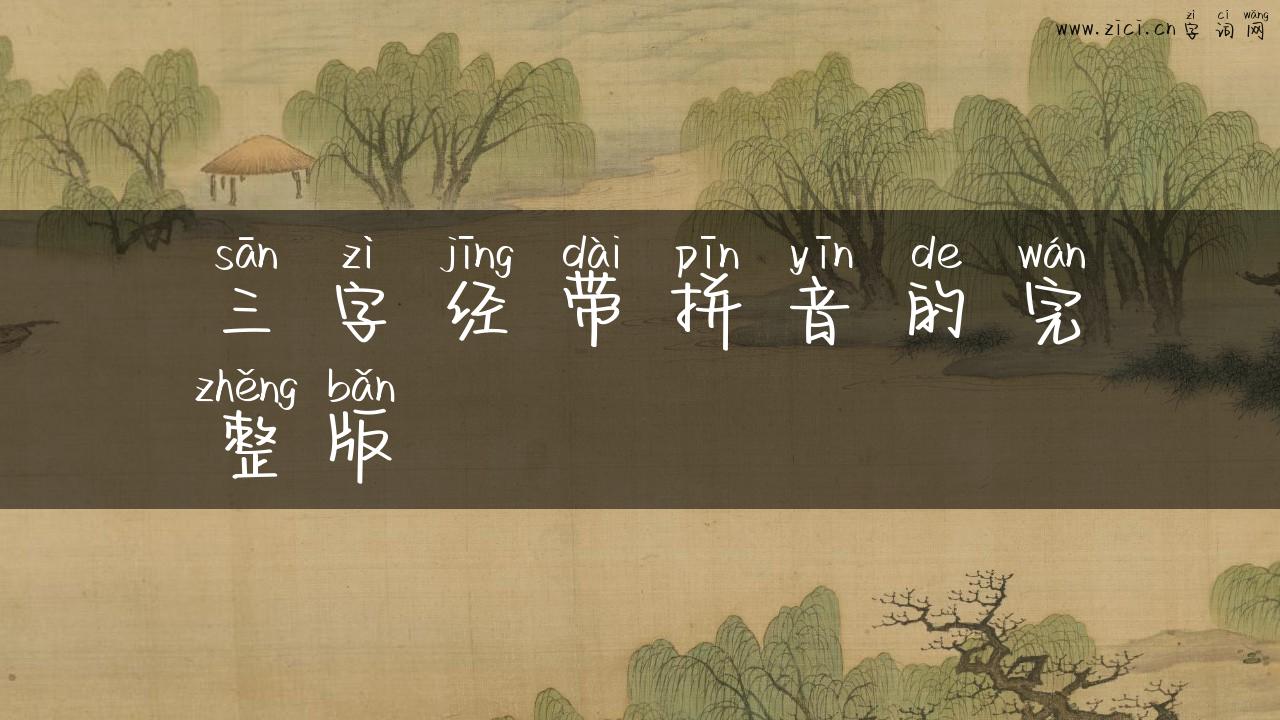 zì cí wǎng
www.zici.cn 字词网
sān zì jīng dài pīn yīn de wán
三字经带拼音的完
zhěng bǎn
整版